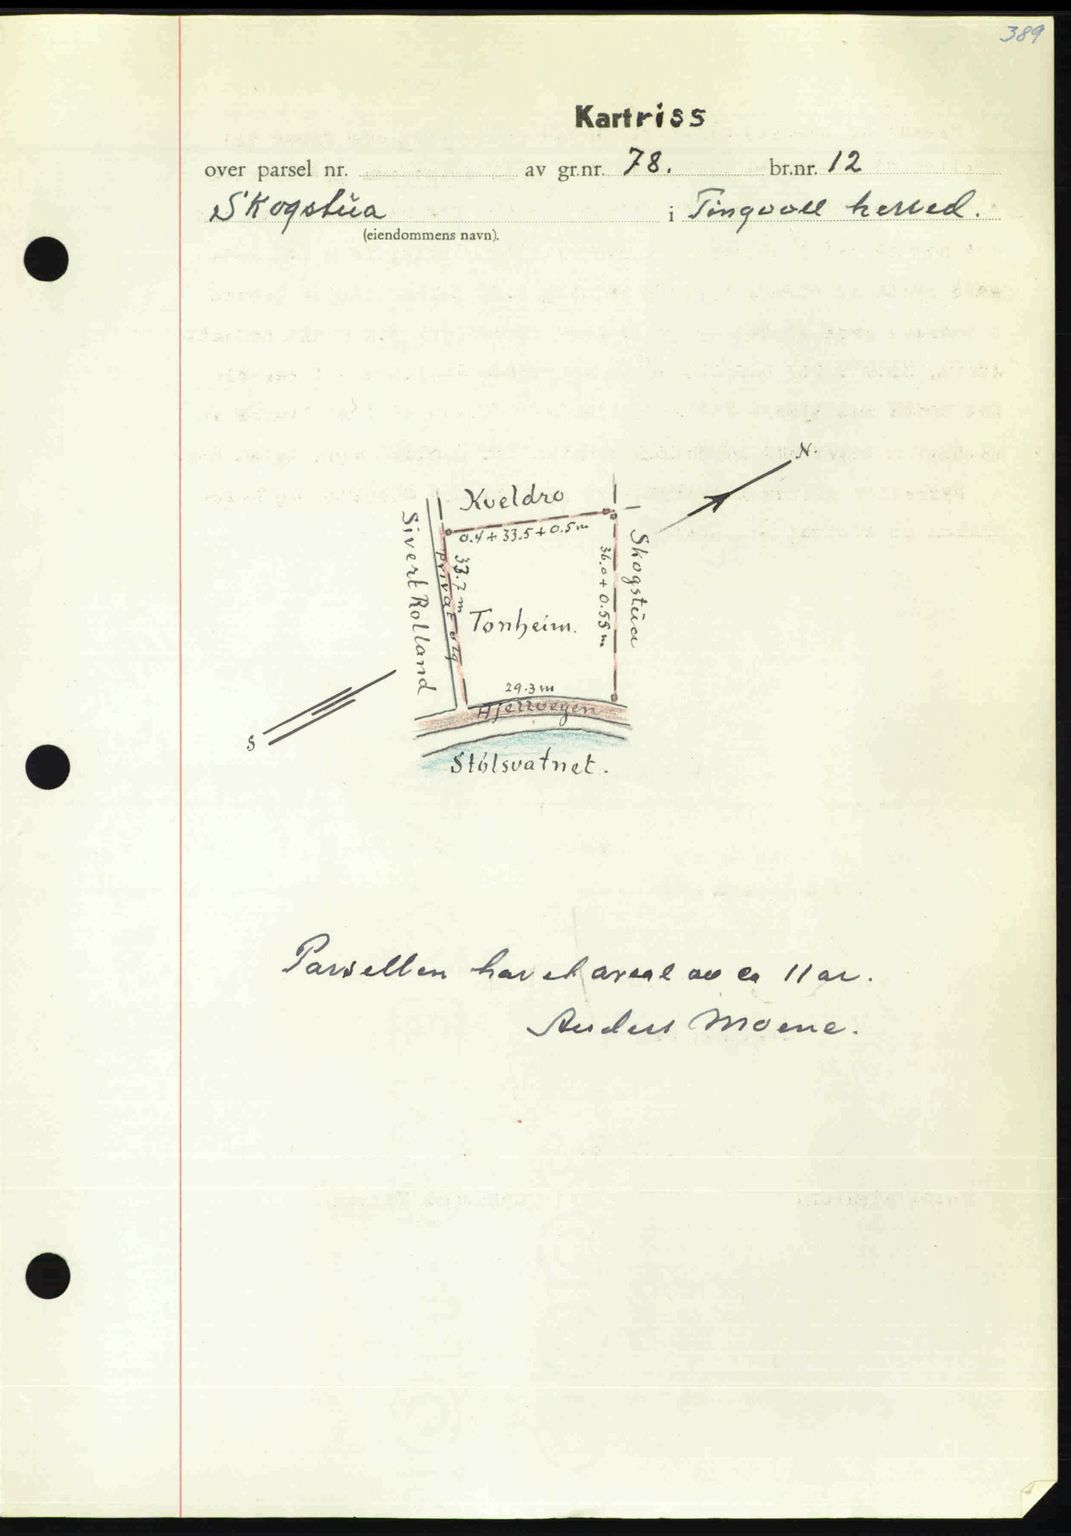 389
Kartriss
over parsel nr. av gr.nr. 78. br.nr. 12
Skogstüa i Tingvoll herred.
(eiendommens navn).
N
Kveldro
0.4 + 33.5 + 0.5 m
Sivert Rolland
privat veg
33.7 m
Tonheim.
36.0 + 0.55 m
Skogstüa
29.3 m
Stólsvatnet.
S
Parsellen har et areal av ca 11 ar.
Anders Moene.